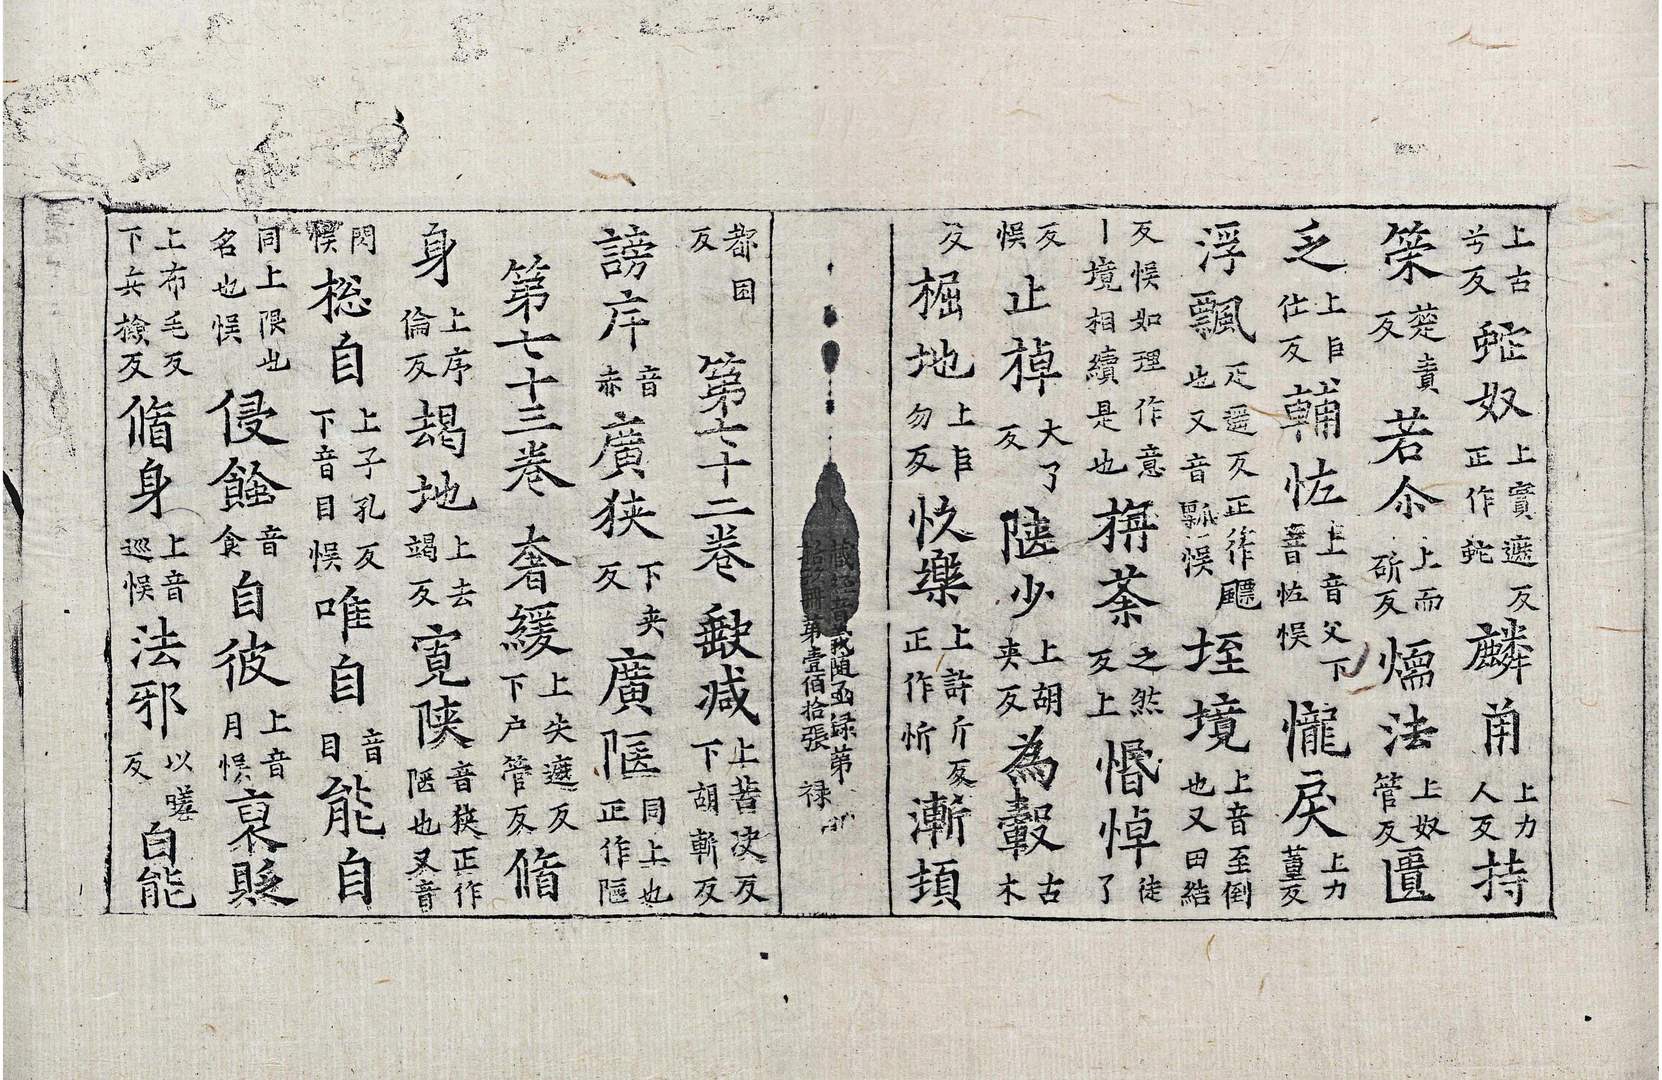 上古兮反 蛇奴 上實遮反正作虵 麟角 上力人反 持
䇿 楚責反 若尒 上而斫反 㷒法 上奴管反 匱
乏 上臣仕反 輔佐 上音父下音佐悮 㦕戾 上力董反上力
浮飄 疋遥反正作飃也又音瓢悮 垤境 上音至倒也又田結
反悮如理作意丨境相續是也 栴荼 之然反上 惛悼 徒了
反悮 止棹 大了反 陿少 上胡夾反 為轂 古木
反 掘地 上臣勿反 忺樂 上許斤反正作忻 漸頓
藏經音義随函録第
第壹佰拾張 禄
都困反 第七十二卷 缺减 上苦决反下胡斬反
謗斥 音赤 廣狹 下夾反 廣陿 同上也正作陿
第七十三卷 奢緩 上失遮反下户管反 脩
身 上序倫反 朅地 上去竭反 寛陜 音狹正作陿也又音
閃悮 捴自 上子孔反下音目悮 唯自 音目 能自
同上限也名也悮 侵餩 音食 自彼 上音月悮 裒貶
上布毛反下兵撿反 脩身 上音巡悮 法邪 以嗟反 自能